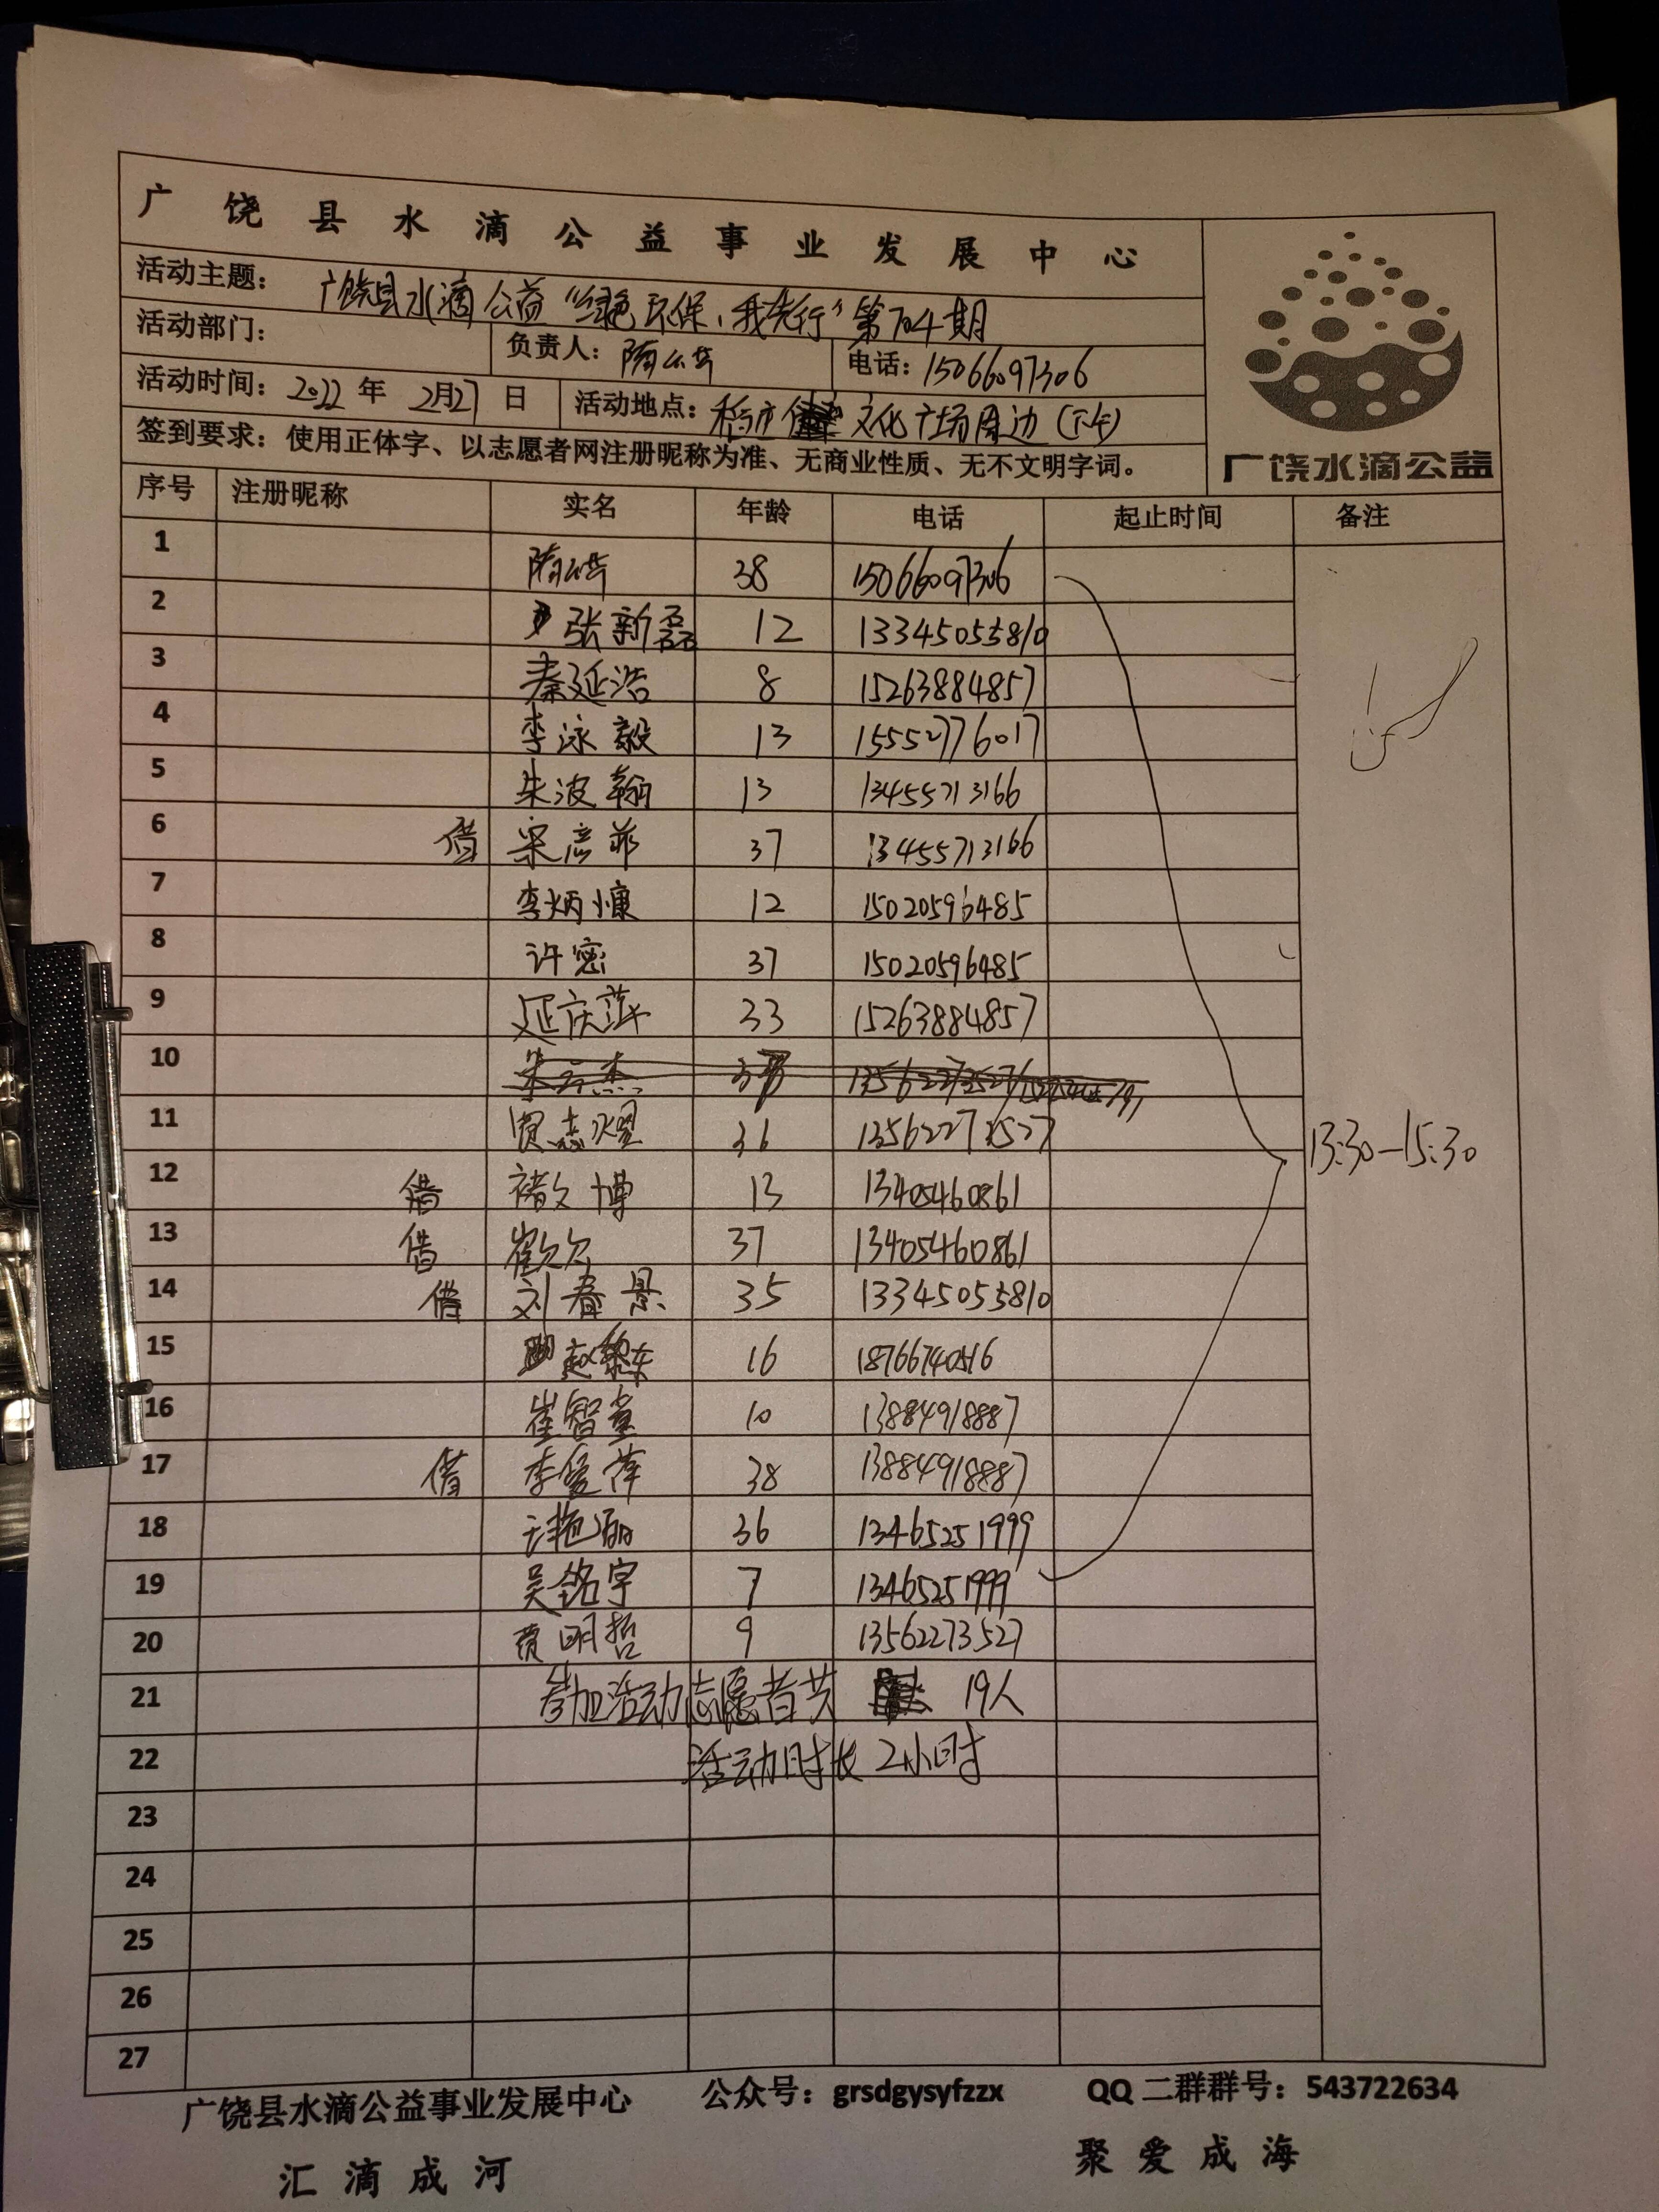 广饶县水滴公益事业发展中心
活动主题： 广饶县水滴公益“绿色环保，我先行”第704期
活动部门： 负责人： 电话：15066097306
活动时间：2022年 2月27日 活动地点： 文化广场周边（下午）
签到要求：使用正体字、以志愿者网注册昵称为准、无商业性质、无不文明字词。
广饶水滴公益
序号 注册昵称 实名 年龄 电话 起止时间 备注
1 38 15066097306
2 张新磊 12 13345055810
3 秦延浩 8 15263884857
4 李泳毅 13 15552776017
5 朱波翰 13 13455713166
6 借 宋彦菲 37 13455713166
7 李炳慷 12 15020596485
8 许密 37 15020596485
9 延庆萍 33 15263884857
10
11 贾志耀 36 13562273527
12 借 褚文博 13 13405460861
13 借 崔欠欠 37 13405460861
13:30—15:30
14 借 刘春景 35 13345055810
15 赵黎东 16 18766740516
16 崔智童 10 13884918887
17 借 李爱萍 38 13884918887
18 艳丽 36 13465251999
19 吴铭宇 7 13465251999
20 贾明哲 9 13562273527
21 参加活动志愿者共 19人
22 活动时长 2小时
23
24
25
26
27
广饶县水滴公益事业发展中心 公众号：grsdgysyfzzx QQ 二群群号：543722634
汇滴成河 聚爱成海